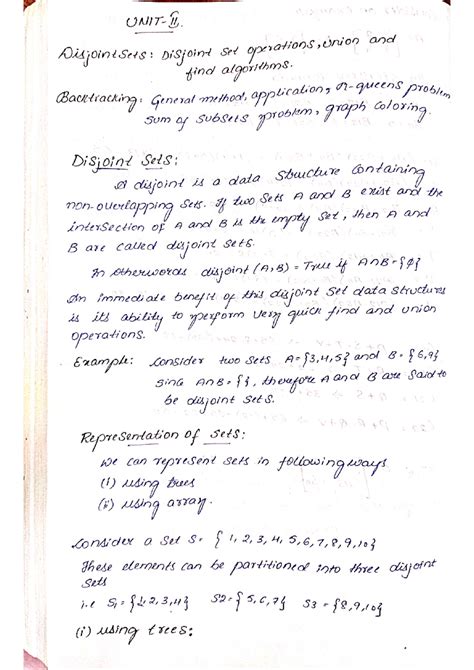 UNIT-II.
Disjoint Sets: Disjoint Set operations, Union and
find algorithms.
Backtracking: General method, application, n-queens problem
sum of subsets problem, graph coloring.
Disjoint Sets:
A disjoint is a data structure containing
non-overlapping sets. If two sets A and B exist and the
intersection of A and B is the empty set, then A and
B are called disjoint sets.
In otherwords disjoint (A,B) = True if A∩B={ϕ}
An immediate benefit of this disjoint set data structure
is its ability to perform very quick find and union
operations.
Example: Consider two sets A={3,4,5} and B={6,9}
sing A∩B={}, therefore A and B are said to
be disjoint sets.
Representation of sets:
We can represent sets in following ways
(i) using trees
(ii) using array.
Consider a set S= {1,2,3,4,5,6,7,8,9,10}
These elements can be partitioned into three disjoint
sets
i.e S1={1,2,3,4} S2={5,6,7} S3={8,9,10}
(i) using trees: